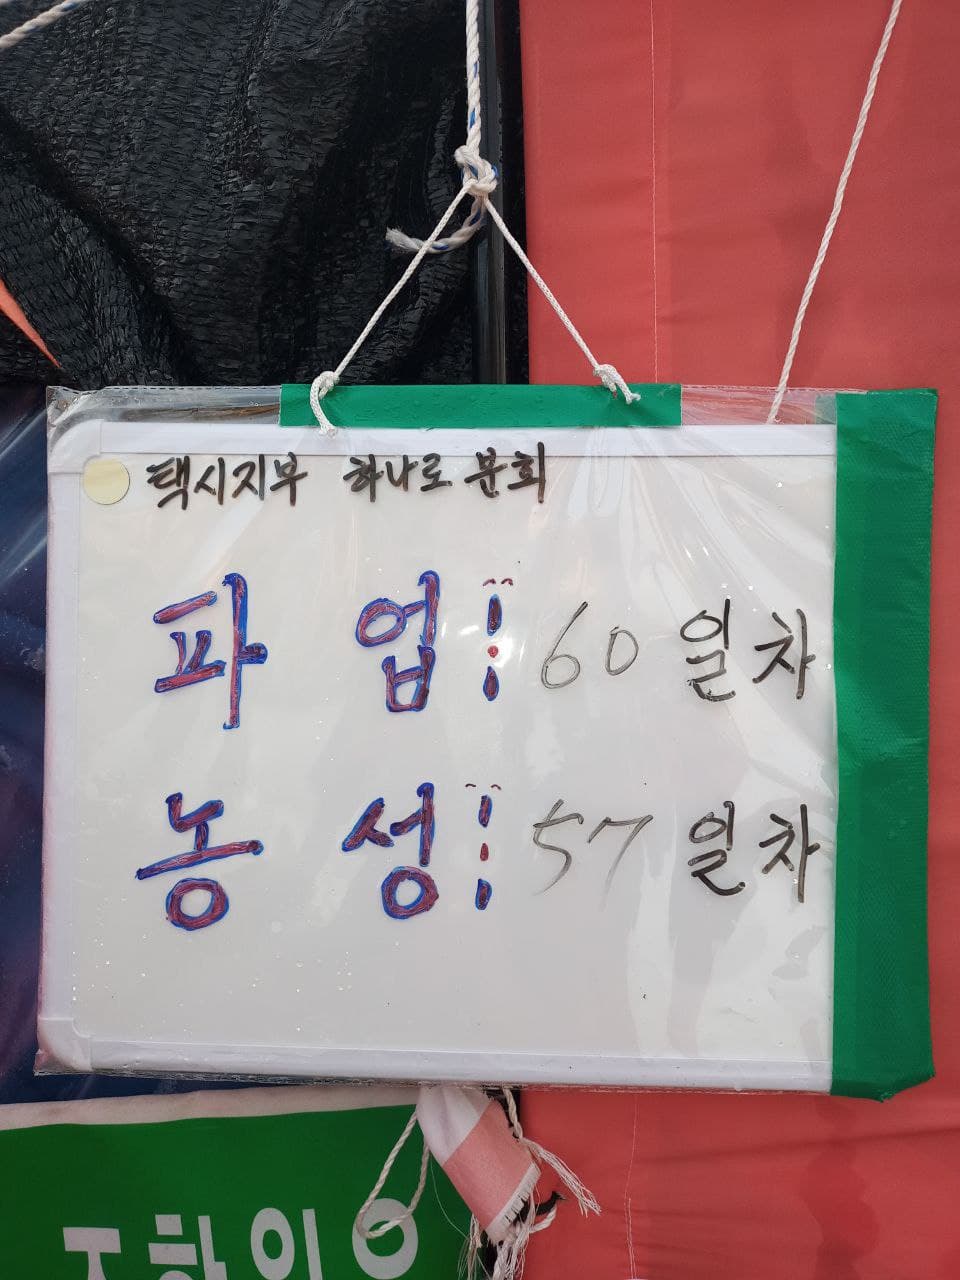 택시지부 하나로 분회
파업: 60일차
농성: 57일차
조합원